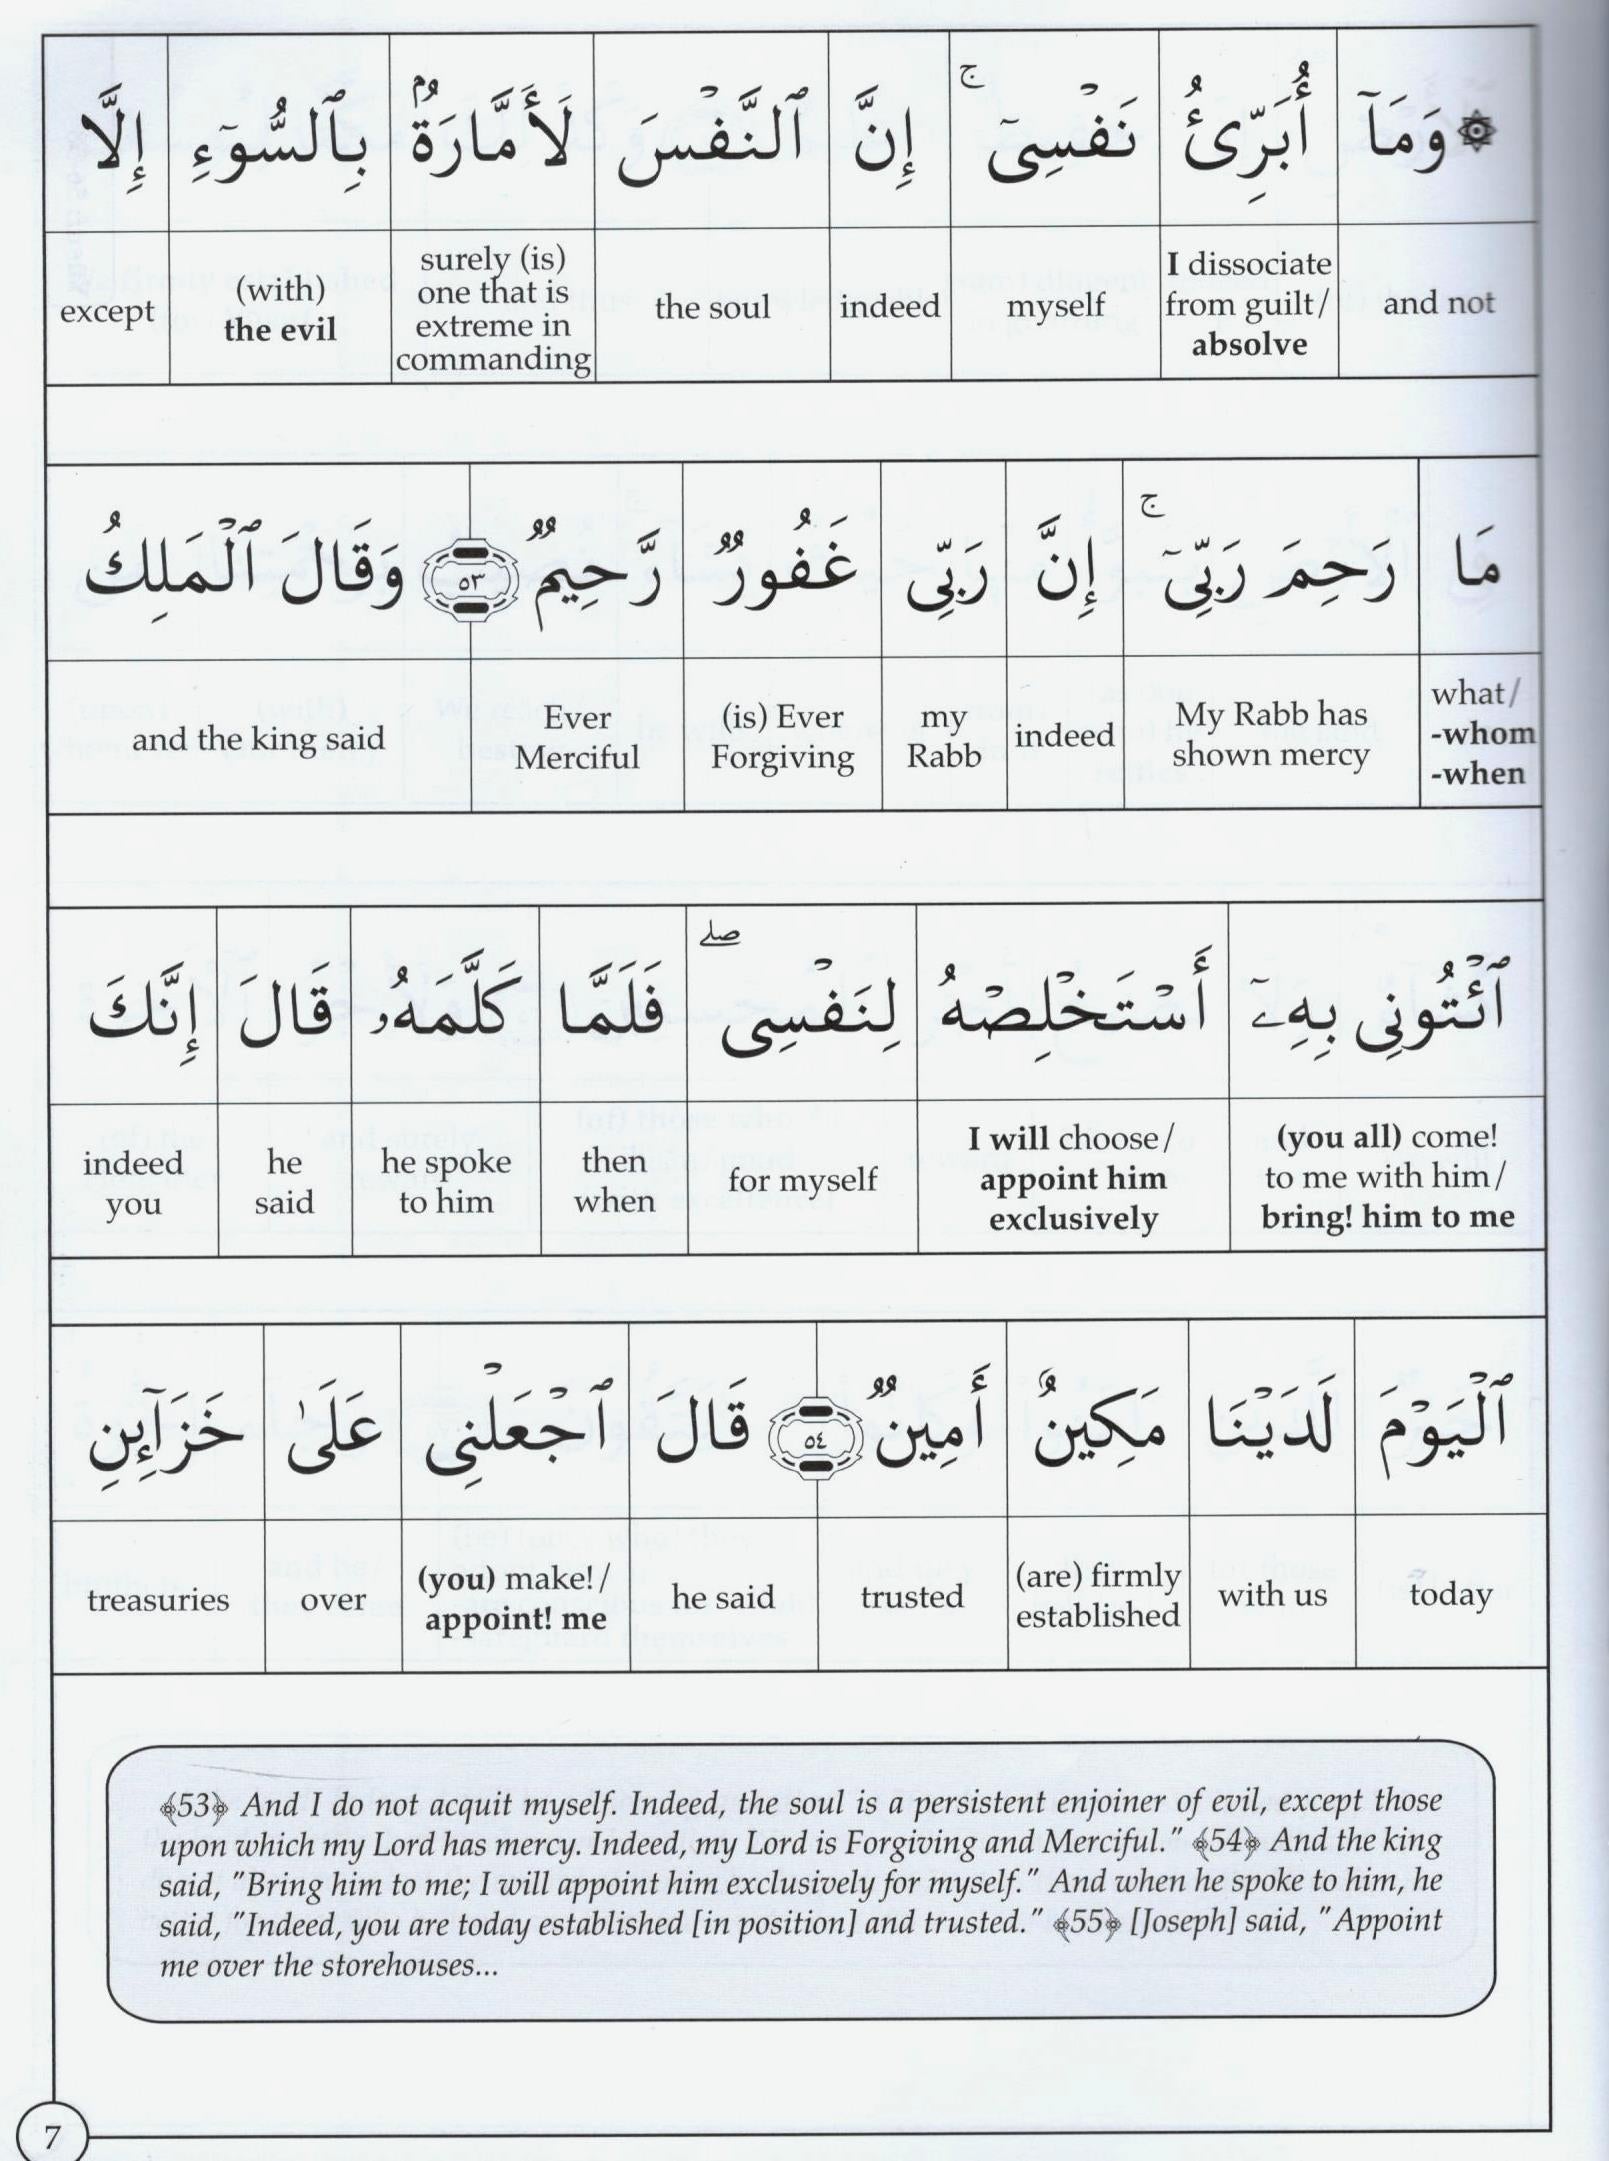 ۞ وَمَآ أُبَرِّئُ نَفْسِىٓ ۚ إِنَّ ٱلنَّفْسَ لَأَمَّارَةٌۢ بِٱلسُّوٓءِ إِلَّا
and not | I dissociate from guilt/ absolve | myself | indeed | the soul | surely (is) one that is extreme in commanding | (with) the evil | except
مَا رَحِمَ رَبِّىٓ ۚ إِنَّ رَبِّى غَفُورٌ رَّحِيمٌ ٥٣ وَقَالَ ٱلْمَلِكُ
what/ -whom -when | My Rabb has shown mercy | indeed | my Rabb | (is) Ever Forgiving | Ever Merciful | and the king said
ٱئْتُونِى بِهِۦٓ أَسْتَخْلِصْهُ لِنَفْسِى ۖ فَلَمَّا كَلَّمَهُۥ قَالَ إِنَّكَ
(you all) come! to me with him/ bring! him to me | I will choose/ appoint him exclusively | for myself | then when | he spoke to him | he said | indeed you
ٱلْيَوْمَ لَدَيْنَا مَكِينٌ أَمِينٌ ٥٤ قَالَ ٱجْعَلْنِى عَلَىٰ خَزَآئِنِ
today | with us | (are) firmly established | trusted | he said | (you) make!/ appoint! me | over | treasuries
﴾53﴿ And I do not acquit myself. Indeed, the soul is a persistent enjoiner of evil, except those
upon which my Lord has mercy. Indeed, my Lord is Forgiving and Merciful." ﴾54﴿ And the king
said, "Bring him to me; I will appoint him exclusively for myself." And when he spoke to him, he
said, "Indeed, you are today established [in position] and trusted." ﴾55﴿ [Joseph] said, "Appoint
me over the storehouses...
7